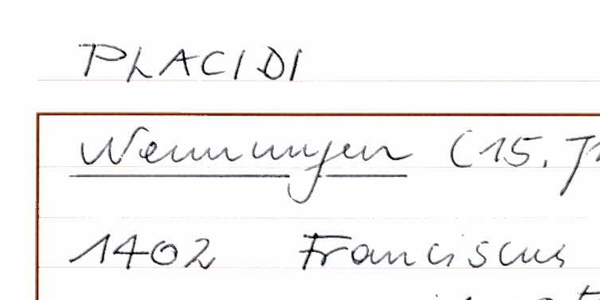 PLACIDI
Nennungen (15.
1402 Franciscus